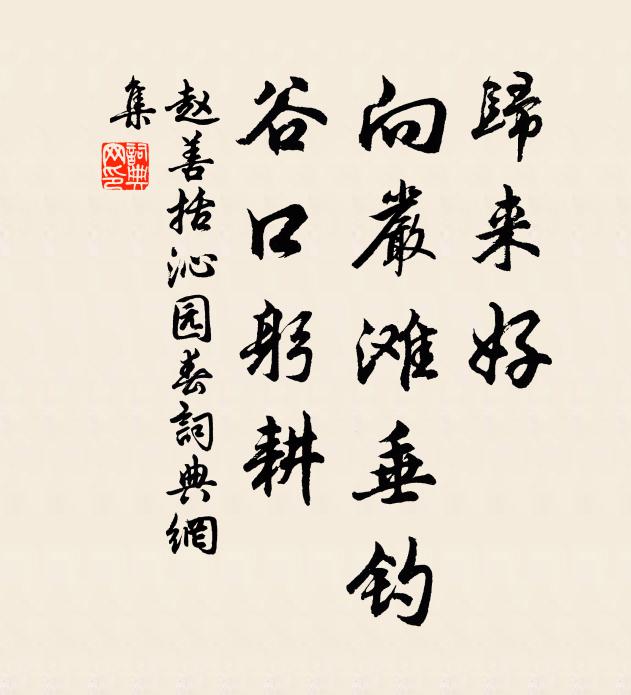 歸来好
向嚴滩垂钓
谷口躬耕
赵善括沁园春詞典網
集
詞典网印